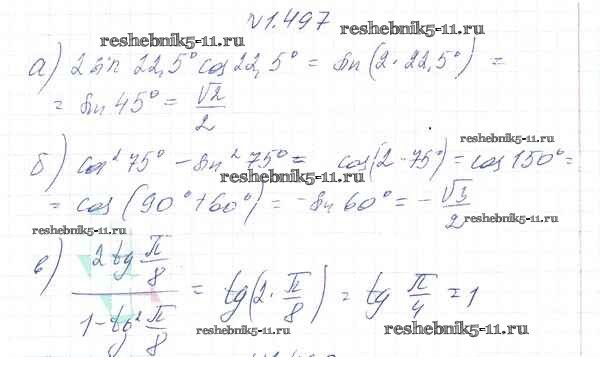 №1.497
reshebnik5-11.ru
reshebnik5-11.ru
а) 2 sin 22,5° cos 22,5° = sin (2 · 22,5°) =
= sin 45° = √2/2
reshebnik5-11.ru
б) cos² 75° - sin² 75° = cos(2 · 75°) = cos 150° =
reshebnik5-11.ru
= cos (90° + 60°) = - sin 60° = - √3/2
reshebnik5-11.ru
reshebnik5-11.ru
в) 2 tg π/8 / 1 - tg² π/8 = tg (2 · π/8) = tg π/4 = 1
reshebnik5-11.ru
reshebnik5-11.ru